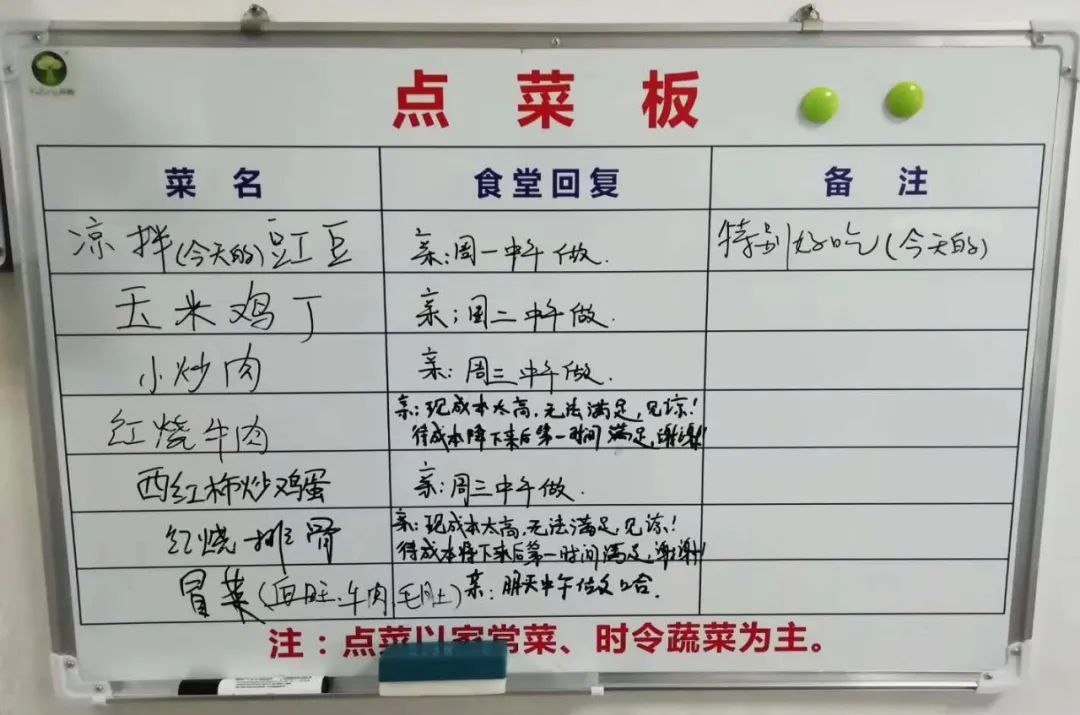 点菜板
菜名 食堂回复 备注
凉拌(今天的)豇豆 亲:周一中午做. 特别好吃(今天的)
玉米鸡丁 亲;周二中午做.
小炒肉 亲:周三中午做.
红烧牛肉 亲:现成本太高,无法满足,见谅!
待成本降下来后第一时间满足,谢谢!
西红柿炒鸡蛋 亲:周三中午做.
红烧排骨 亲:现成本太高,无法满足,见谅!
待成本降下来后第一时间满足,谢谢!
冒菜(血旺.牛肉,毛肚) 亲:明天中午做
注:点菜以家常菜、时令蔬菜为主。